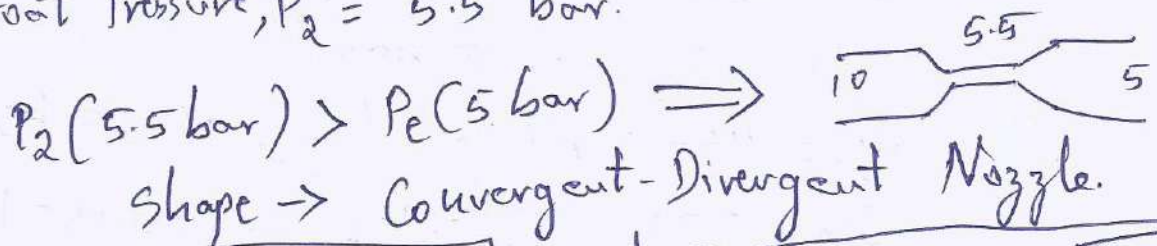 Pressure, P₂ = 5.5 bar.
P₂ (5.5 bar) > Pe (5 bar) ⟹ 10 5.5 5
Shape → Convergent-Divergent Nozzle.